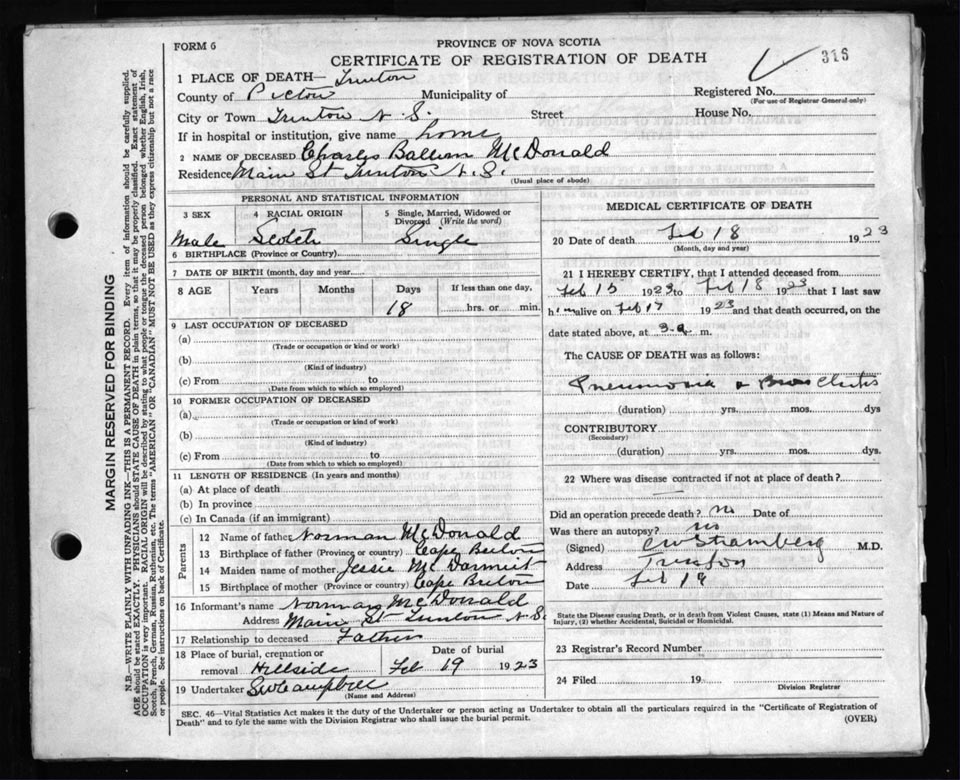 FORM 6
PROVINCE OF NOVA SCOTIA
CERTIFICATE OF REGISTRATION OF DEATH
316
1 PLACE OF DEATH— Trenton
County of Pictou Municipality of
Registered No.
(For use of Registrar General only)
City or Town Trenton N.S. Street House No.
If in hospital or institution, give name home
2 NAME OF DECEASED Charles McDonald
Residence Main St Trenton N.S.
(Usual place of abode)
PERSONAL AND STATISTICAL INFORMATION
3 SEX 4 RACIAL ORIGIN 5 Single, Married, Widowed or Divorced (Write the word)
Male Scotch Single
6 BIRTHPLACE (Province or Country)
7 DATE OF BIRTH (month, day and year)
8 AGE Years Months Days If less than one day,
18 hrs. or min.
9 LAST OCCUPATION OF DECEASED
(a)
(Trade or occupation or kind or work)
(b)
(Kind of industry)
(c) From to
(Date from which to which so employed)
10 FORMER OCCUPATION OF DECEASED
(a)
(Trade or occupation or kind of work)
(b)
(Kind of industry)
(c) From to
(Date from which to which so employed)
11 LENGTH OF RESIDENCE (In years and months)
(a) At place of death
(b) In province
(c) In Canada (if an immigrant)
Parents
12 Name of father Norman McDonald
13 Birthplace of father (Province or country) Cape Breton
14 Maiden name of mother Jessie McDarmit
15 Birthplace of mother (Province or country) Cape Breton
16 Informant's name Norman McDonald
Address Main St Trenton N.S.
17 Relationship to deceased Father
18 Place of burial, cremation or removal Hillside
Date of burial
Feb 19 1923
19 Undertaker Campbell
(Name and Address)
MEDICAL CERTIFICATE OF DEATH
20 Date of death Feb 18 1923
(Month, day and year)
21 I HEREBY CERTIFY, that I attended deceased from
Feb 15 1923 to Feb 18 1923 that I last saw
him alive on Feb 17 1923 and that death occurred, on
date stated above, at 3.a m.
The CAUSE OF DEATH was as follows:
Pneumonia & Bronchitis
(duration) yrs. mos. dys
CONTRIBUTORY
(Secondary)
(duration) yrs. mos. dys.
22 Where was disease contracted if not at place of death?
Did an operation precede death? no Date of
Was there an autopsy? no
(Signed) M.D.
Address Trenton
Date Feb 19
State the Disease causing Death, or in death from Violent Causes, state (1) Means and Nature of
Injury, (2) whether Accidental, Suicidal or Homicidal.
23 Registrar's Record Number
24 Filed 19
Division Registrar
SEC. 46—Vital Statistics Act makes it the duty of the Undertaker or person acting as Undertaker to obtain all the particulars required in the "Certificate of Registration of
Death" and to fyle the same with the Division Registrar who shall issue the burial permit.
(OVER)
MARGIN RESERVED FOR BINDING
N.B.—WRITE PLAINLY WITH UNFADING INK—THIS IS A PERMANENT RECORD. Every item of information should be carefully supplied.
AGE should be stated EXACTLY. PHYSICIANS should STATE CAUSE OF DEATH in plain terms, so that it may be properly classified. Exact statement of
OCCUPATION is very important. RACIAL ORIGIN will be described by stating to what people or tongue the deceased person belonged whether English, Irish,
Scotch, French, German, Russian, Ruthenian, etc. The terms "AMERICAN" OR "CANADIAN" MUST NOT BE USED as they express citizenship but not a race
or people. See instructions on back of Certificate.